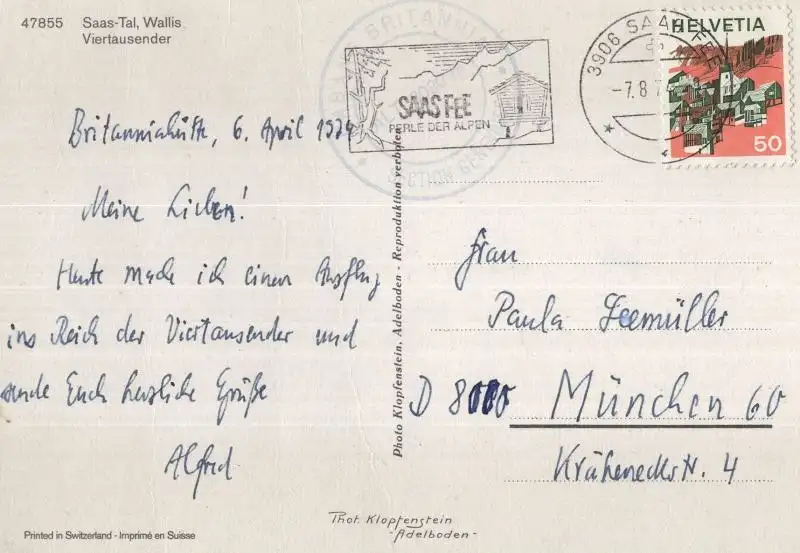 47855 Saas-Tal, Wallis
Viertausender
SAAS FEE
PERLE DER ALPEN
BRITANNIA
SECTION GEN
3906 SAAS-FEE
-7.8.7
HELVETIA
50
Britanniahütte, 6. April 1974
Meine Lieben!
Heute mache ich einen Ausflug
ins Reich der Viertausender und
sende Euch herzliche Grüße
Alfred
Photo Klopfenstein, Adelboden - Reproduktion verboten
Frau
Paula Seemüller
D 8000 München 60
Kräheneckstr. 4
Printed in Switzerland - Imprimé en Suisse
Phot. Klopfenstein
-Adelboden-